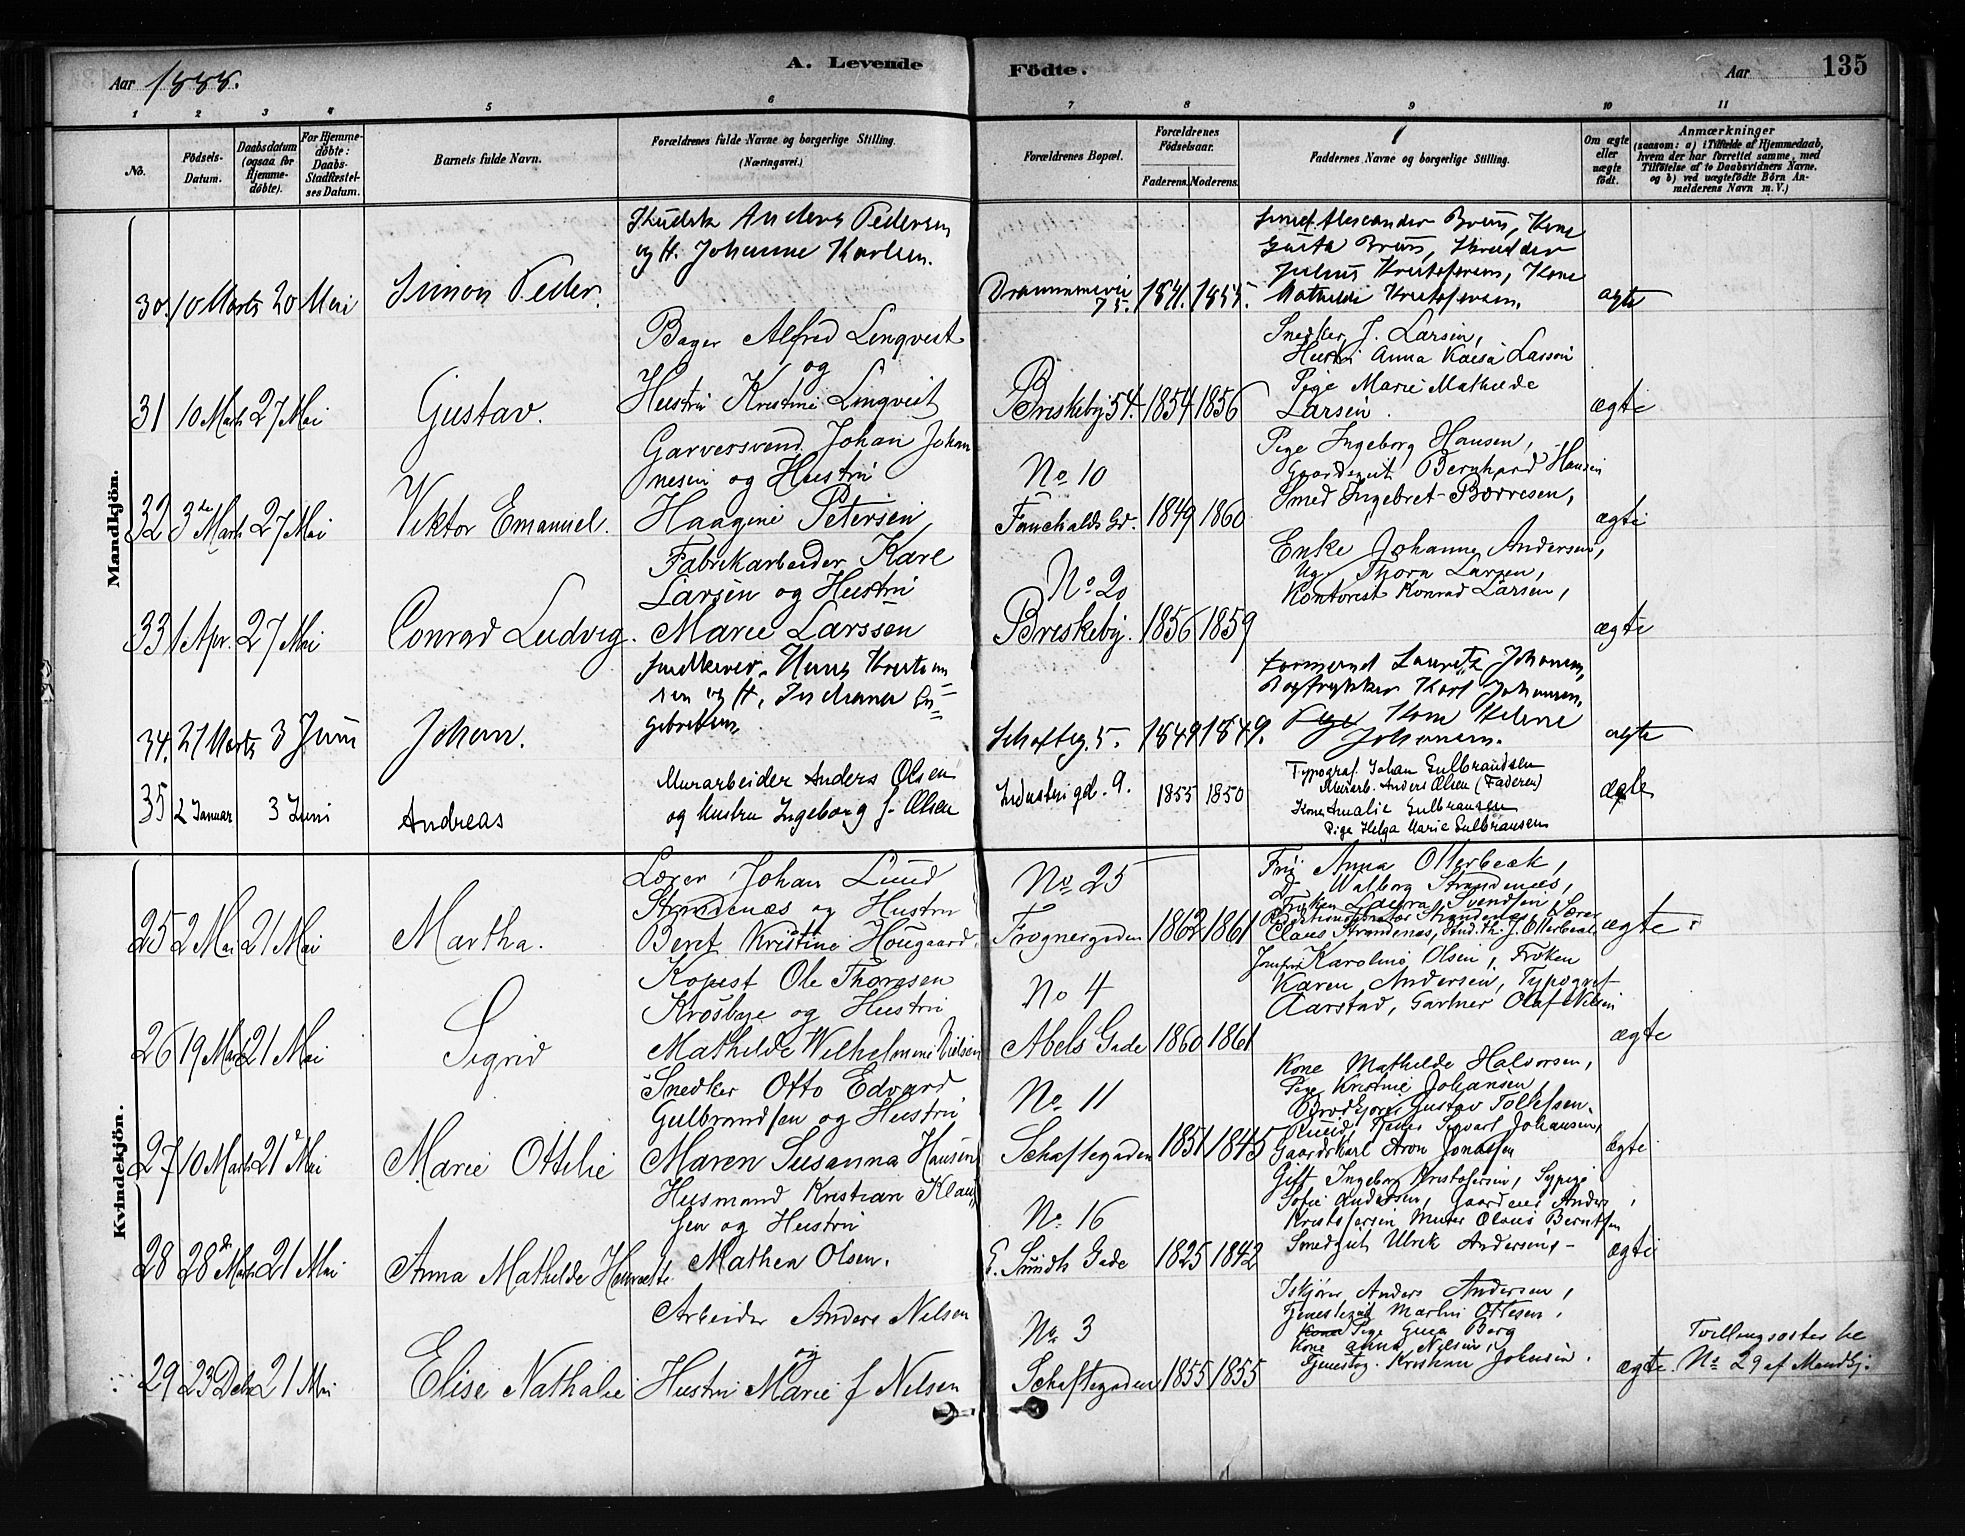 Aar 1888.
A. Levende
Födte.
Aar
135
1 2 3 4 5 6 7 8 9 10 11
No.
Födsels-Datum.
Daabsdatum (ogsaa for Hjemme-döbte).
For Hjemme-döbte: Daabs-Stadfæstel-ses Datum.
Barnets fulde Navn.
Forældrenes fulde Navne og borgerlige Stilling.
(Næringsvei.)
Forældrenes Bopæl.
Forældrenes Födselsaar.
Faderens. Moderens.
Faddernes Navne og borgerlige Stilling.
Om ægte eller uægte födt.
Anmærkninger
(saasom: a) i Tilfælde af Hjemmedaab,
hvem der har forrettet samme, med
Tilföielse af to Daabsvidners Navne,
og b) ved uægtefödte Börn An-
melderens Navn m. V.)
Mandkjön.
Kudsk Anders Pedersen
og H. Johanne Karlsen.
30. 10 Marts 20 Mai Simon Peder.
Drammensvei 75. 1841. 1855.
Smed Alexander Bruus, Kone
Gusta Bruus, Skrædder
Julius Kristofersen, Kone
Mathilde Kristofersen.
ægte
Bager Alfred Linqvist
og
Hustru Kristine Linqvist
31 10 Marts 27 Mai Gustav.
Briskeby 54. 1854 1856
Snedker J. Larsen,
Hustru Anna Kaisa Larsen
Pige Marie Mathilde
Larsen.
ægte
Garversvend Johan Johan
nesen og Hustru
Haagine Petersen
32 3de Marts 27 Mai Viktor Emanuel.
No 10
Fauchalds Gd. 1849 1860
Pige Ingeborg Hansen,
Gaardsgut Bernhard Hansen
Smed Ingebret Børresen,
ægte
Fabrikarbeider Karl
Larsen og Hustru
Marie Larssen
33 1 Apr. 27 Mai Conrad Ludvig.
No 20
Briskeby. 1856 1859
Enke Johanne Andersen,
Ug. Thora Larsen,
Kontorist Konrad Larsen,
ægte
Snedker Hans Kristian
sen og H. Indiana In
gebretsen
34. 21 Marts 3 Juni Johan.
Schafteg. 5. 1849 1849.
Formand Lauritz Johansen,
Bogtrykker Karl Johansen,
Kone Helene
Johansen.
ægte
Murarbeider Anders Olsen
og hustru Ingeborg f. Olsen
35 2 Januar 3 Juni Andreas
Industrigd. 9. 1855 1850
Typograf. Johan Gulbrandsen
Murarb. Anders Olsen (Faderen)
Kone Amalie Gulbransen
Pige Helga Marie Gulbransen
ægte
Kvindekjön.
Lærer Johan Lund
Strandenæs og Hustru
Beret Kristine Hougaard.
25 2 Mar 21 Mai Martha.
No 25
Frognergaden 1862 1861
Fru Anna Otterbeck,
D. Walborg Strandenæs,
Frøken Laura Svendsen
Strandenæs, Lærer
Claus Strandenæs, Stud. th. J. Otterbeck
ægte.
Kopist Ole Thoresen
Krosbye og Hustru
Mathilde Wilhelmine Nielsen
26 19 Marts 21 Mai Sigrid
No 4
Abels Gade 1860 1861
Jomfru Karoline Olsen, Frøken
Karen Andersen, Typograf
Aarstad, Gartner Olaf Nilsen
ægte
Snedker Otto Edvard
Gulbrandsen og Hustru
Maren Susanna Hansen
27 10 Marts 21 Mai Marie Ottilie
No 11
Schaftegaden 1851 1845
Kone Mathilde Halvorsen,
Pige Kristine Johansen
Brødkjører Gustav Tollefsen.
Johansen,
Gaardskarl Aron Jonassen
ægte
Husmand Kristian Klau
sen og Hustru
Mathea Olsen.
28 28de Marts 21 Mai Anna Mathilde Henriette
No 16
E. Sundts Gade 1825 1842
Gift Ingeborg Kristofersen, Sypige
Sofie Andersen, Gaardeier Anders
Kristofersen, Murer Olaus Berntsen
Smedgut Ulrik Andersen
ægte
Arbeider Anders Nilsen
og
Hustru Marie f Nilsen
29 23 Debr 21 Mai Elise Nathalie
No 3
Schaftegaden 1855 1855
Iskjører Anders Andersen,
Tjenestepige Martin Ottesen,
Pige Gina Berg
Kone Anna Nilsen,
Tjenesteg. Kristian Johnsen.
ægte.
Tvillingsøster til
No 29 af Mandkj.